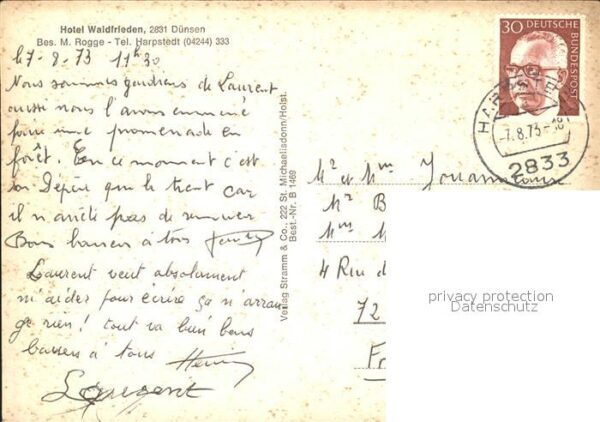 Hotel Waldfrieden, 2831 Dünsen
Bes. M. Rogge - Tel. Harpstedt (04244) 333
7-8-73 11h30
Nous sommes gardiens de Laurent
aussi nous l'avons emmené
faire une promenade en
forêt. En ce moment c'est
son Pépère qui le tient car
il n'arrête pas de remuer
Bons baisers à tous
Laurent veut absolument
m'aider pour écrire ça n'arran
ge rien! tout va bien bons
baisers à tous Henri
Laurent
Verlag Stramm & Co., 222 St. Michaelisdonn/Holst.
Best.-Nr. B 1469
30 DEUTSCHE BUNDESPOST
-7.8.73-18
2833
Mr et Mme
Mr B
Mme M
4 Rue d
72
Fr
privacy protection
Datenschutz